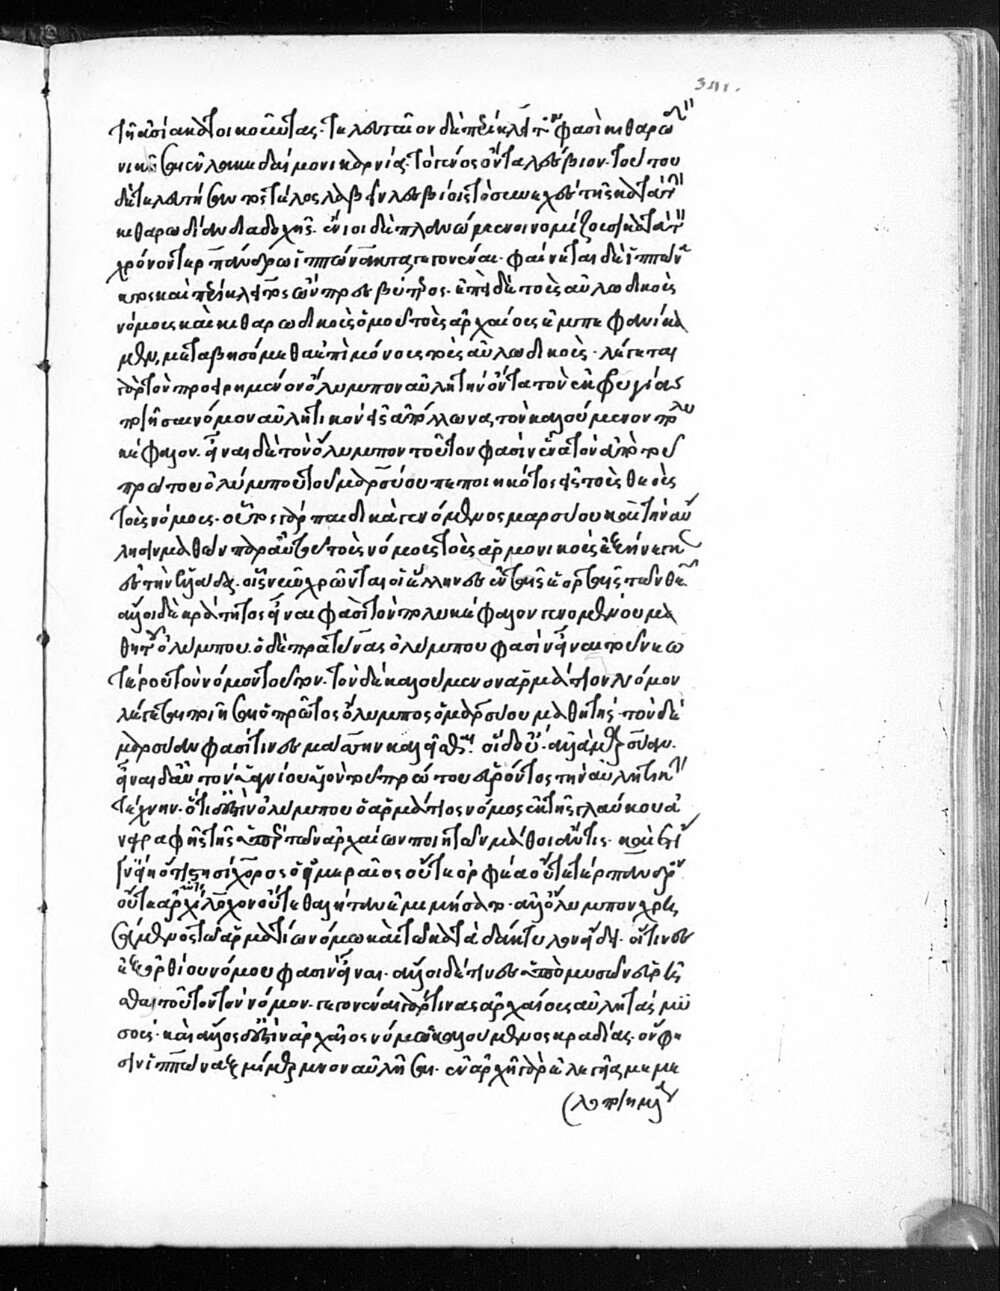 τῇ ἀσία κατοικοῦντας. τελευταῖον δὲ περίκλειτόν φασὶ κιθαρῳδὸν
νικῆσαι ἐν λακεδαίμονι κάρνια. τὸ γένος ὄντα λέσβιον. τούτου
δὲ τελευτήσαντος τέλος λαβεῖν λεσβίοις τὸ συνεχὲς τῆς κατὰ τὴν
κιθαρωδίαν διαδοχῆς. ἔνιοι δὲ πλανώμενοι νομίζουσι κατὰ τὸν αὐτὸν
χρόνον τερπάνδρω ἱππώνακτα γεγονέναι. φαίνεται δὲ ἱππών
κτος καὶ περίκλειτος ὢν πρεσβύτερος. ἐπεὶ δὲ τοὺς αὐλωδικοὺς
νόμους καὶ κιθαρωδικοὺς ὁμοῦ τοὺς ἀρχαίους ἐμπεφανίκα
μεν, μεταβησόμεθα ἐπὶ μόνους τοὺς αὐλωδικούς. λέγεται
γὰρ τὸν προειρημένον ὄλυμπον αὐλητὴν ὄντα τῶν ἐκ φρυγίας
ποιῆσαι νόμον αὐλητικὸν εἰς ἀπόλλωνα τὸν καλούμενον πολυ
κέφαλον. εἶναι δὲ τὸν ὄλυμπον τοῦτον φασὶν ἕνα τῶν ἀπὸ τοῦ
πρώτου ὀλύμπου τοῦ μαρσύου πεποιηκότος εἰς τοὺς θεοὺς
τοὺς νόμους. οὗτος γὰρ παιδικὰ γενόμενος μαρσύου καὶ τὴν αὔ
λησιν μαθὼν παρ αὐτοῦ τοὺς νόμους τοὺς ἁρμονικοὺς ἐξήνεγκεν
εἰς τὴν ἑλλάδα. οἷς νῦν χρῶνται οἱ ἕλληνες ἐν ταῖς ἑορταῖς τῶν θεῶν
ἄλλοι δὲ κράτητος εἶναι φασὶ τὸν πολυκέφαλον γενομένου μα
θητοῦ ὀλύμπου. ὁ δὲ πρατίνας ὀλύμπου φασὶν εἶναι τοῦ νεω
τέρου τὸν νόμον τοῦτον. τὸν δὲ καλούμενον ἁρμάτιον νόμον
λέγεται ποιῆσαι ὁ πρῶτος ὄλυμπος ὁ μαρσύου μαθητής. τὸν δὲ
μαρσύαν φασί τινες μάσσην καλεῖσθαι. οἱ δ οὔ. ἀλλὰ μαρσύαν.
εἶναι δ αὐτὸν ὑάγνιδος υἱὸν τοῦ πρώτου εὑρόντος τὴν αὐλητικὴν
τέχνην. ὅτι δ ἐστὶν ὀλύμπου ὁ ἁρμάτιος νόμος ἐκ τῆς γλαύκου ἀ
ναγραφῆς τῆς ὑπὲρ τῶν ἀρχαίων ποιητῶν μάθοι ἄν τις. καὶ ἔτι
γνοίη ὅτι στησίχορος ὁ ἱμεραῖος οὔτε ὀρφέα οὔτε τέρπανδρον
οὔτε ἀρχίλοχον οὔτε θαλήταν ἐμιμήσατο. ἀλλ ὄλυμπον χρη
σάμενος τῶ ἁρματίω νόμω καὶ τῶ κατὰ δάκτυλον εἴδει. ὅ τινες
ἐξ ὀρθίου νόμου φασὶν εἶναι. ἄλλοι δέ τινες ὑπὸ μυσῶν εὑρῆ
σθαι τοῦτον τὸν νόμον. γεγονέναι γάρ τινας ἀρχαίους αὐλητὰς μυ
σούς. καὶ ἄλλος δ ἐστὶν ἀρχαῖος νόμος καλούμενος κραδίας. ὅν φη
σὶν ἱππῶναξ μίμνερμον αὐλῆσαι. ἐν ἀρχῇ γὰρ ἐλεγεῖα μεμε
λοποιημένα